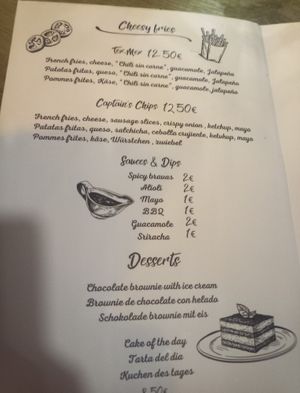 Cheesy fries
Tex Mex 12.50€
French fries, cheese, "Chili sin carne", guacamole, Jalapeño
Patatas fritas, queso, "Chili sin carne", guacamole, Jalapeño
Pommes frites, Käse, "Chili sin carne", guacamole, jalapeño
Captain's Chips 12,50€
French fries, cheese, sausage slices, crispy onion, ketchup, mayo
Patatas fritas, queso, salchicha, cebolla crujiente, ketchup, mayo
Pommes frites, Käse, Würstchen, zwiebel
Sauces & Dips
Spicy bravas 2€
Alioli 2€
Mayo 1€
BBQ 1€
Guacamole 2€
Sriracha 1€
Desserts
Chocolate brownie with ice cream
Brownie de chocolate con helado
Schokolade brownie mit eis
Cake of the day
Tarta del dia
Kuchen des tages
8.50€